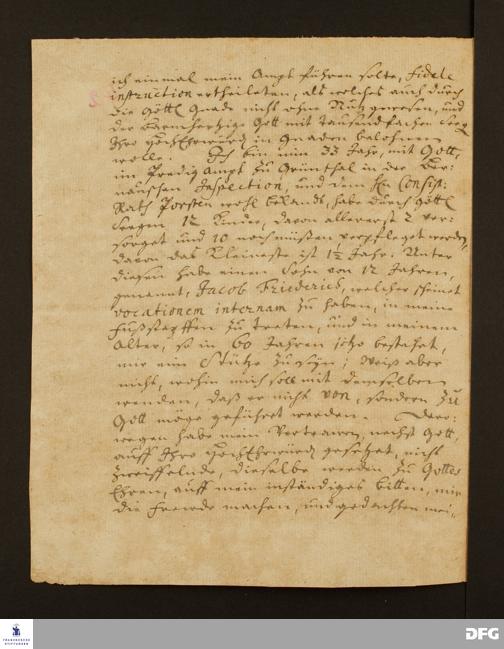 ich einmal mein Ampt führen solte, fidele
instruction ertheileten, als welches auch durch
die Göttl Gnade nicht ohne Nutz gewesen, und
der Barmhertzige Gott mit tausendfachen Seeg
Ihro HochEhrwürd in Gnaden belohnen
wolle. Ich bin nun 33 Jahr, mit Gott,
im Predig Ampt zu Grünthal in der Ber:
nauschen Inspection, und dem Hn Consist:
Rath Porsten wohl bekandt, habe durch Göttl
Seegen 12 Kinder, davon allererst 2 ver:
sorget und 10 noch müßen verpfleget werden,
davon das Kleineste ist 1½ Jahr. Unter
diesen habe einen Sohn von 12 Jahren,
genannt, Jacob Friederich, welcher scheinet
vocationem internam zu haben, in meine
Fußstapffen zu treten, und in meinem
Alter, so in 60 Jahren jtzo bestehet,
mir eine Stütze zu seyn; weiß aber
nicht, wohin mich soll mit demselben
wenden, daß er nicht von, sondern zu
Gott möge geführet werden. Dero:
wegen habe mein Vertrauen, nechst Gott,
auff Ihro HochEhrwürd gesetzet, nicht
zweiffelnde, dieselbe werden zu Gottes
Ehren, auff mein inständiges bitten, mir
die Freude machen, und gedachten mei:
FRANCKESCHE
STIFTUNGEN
DFG